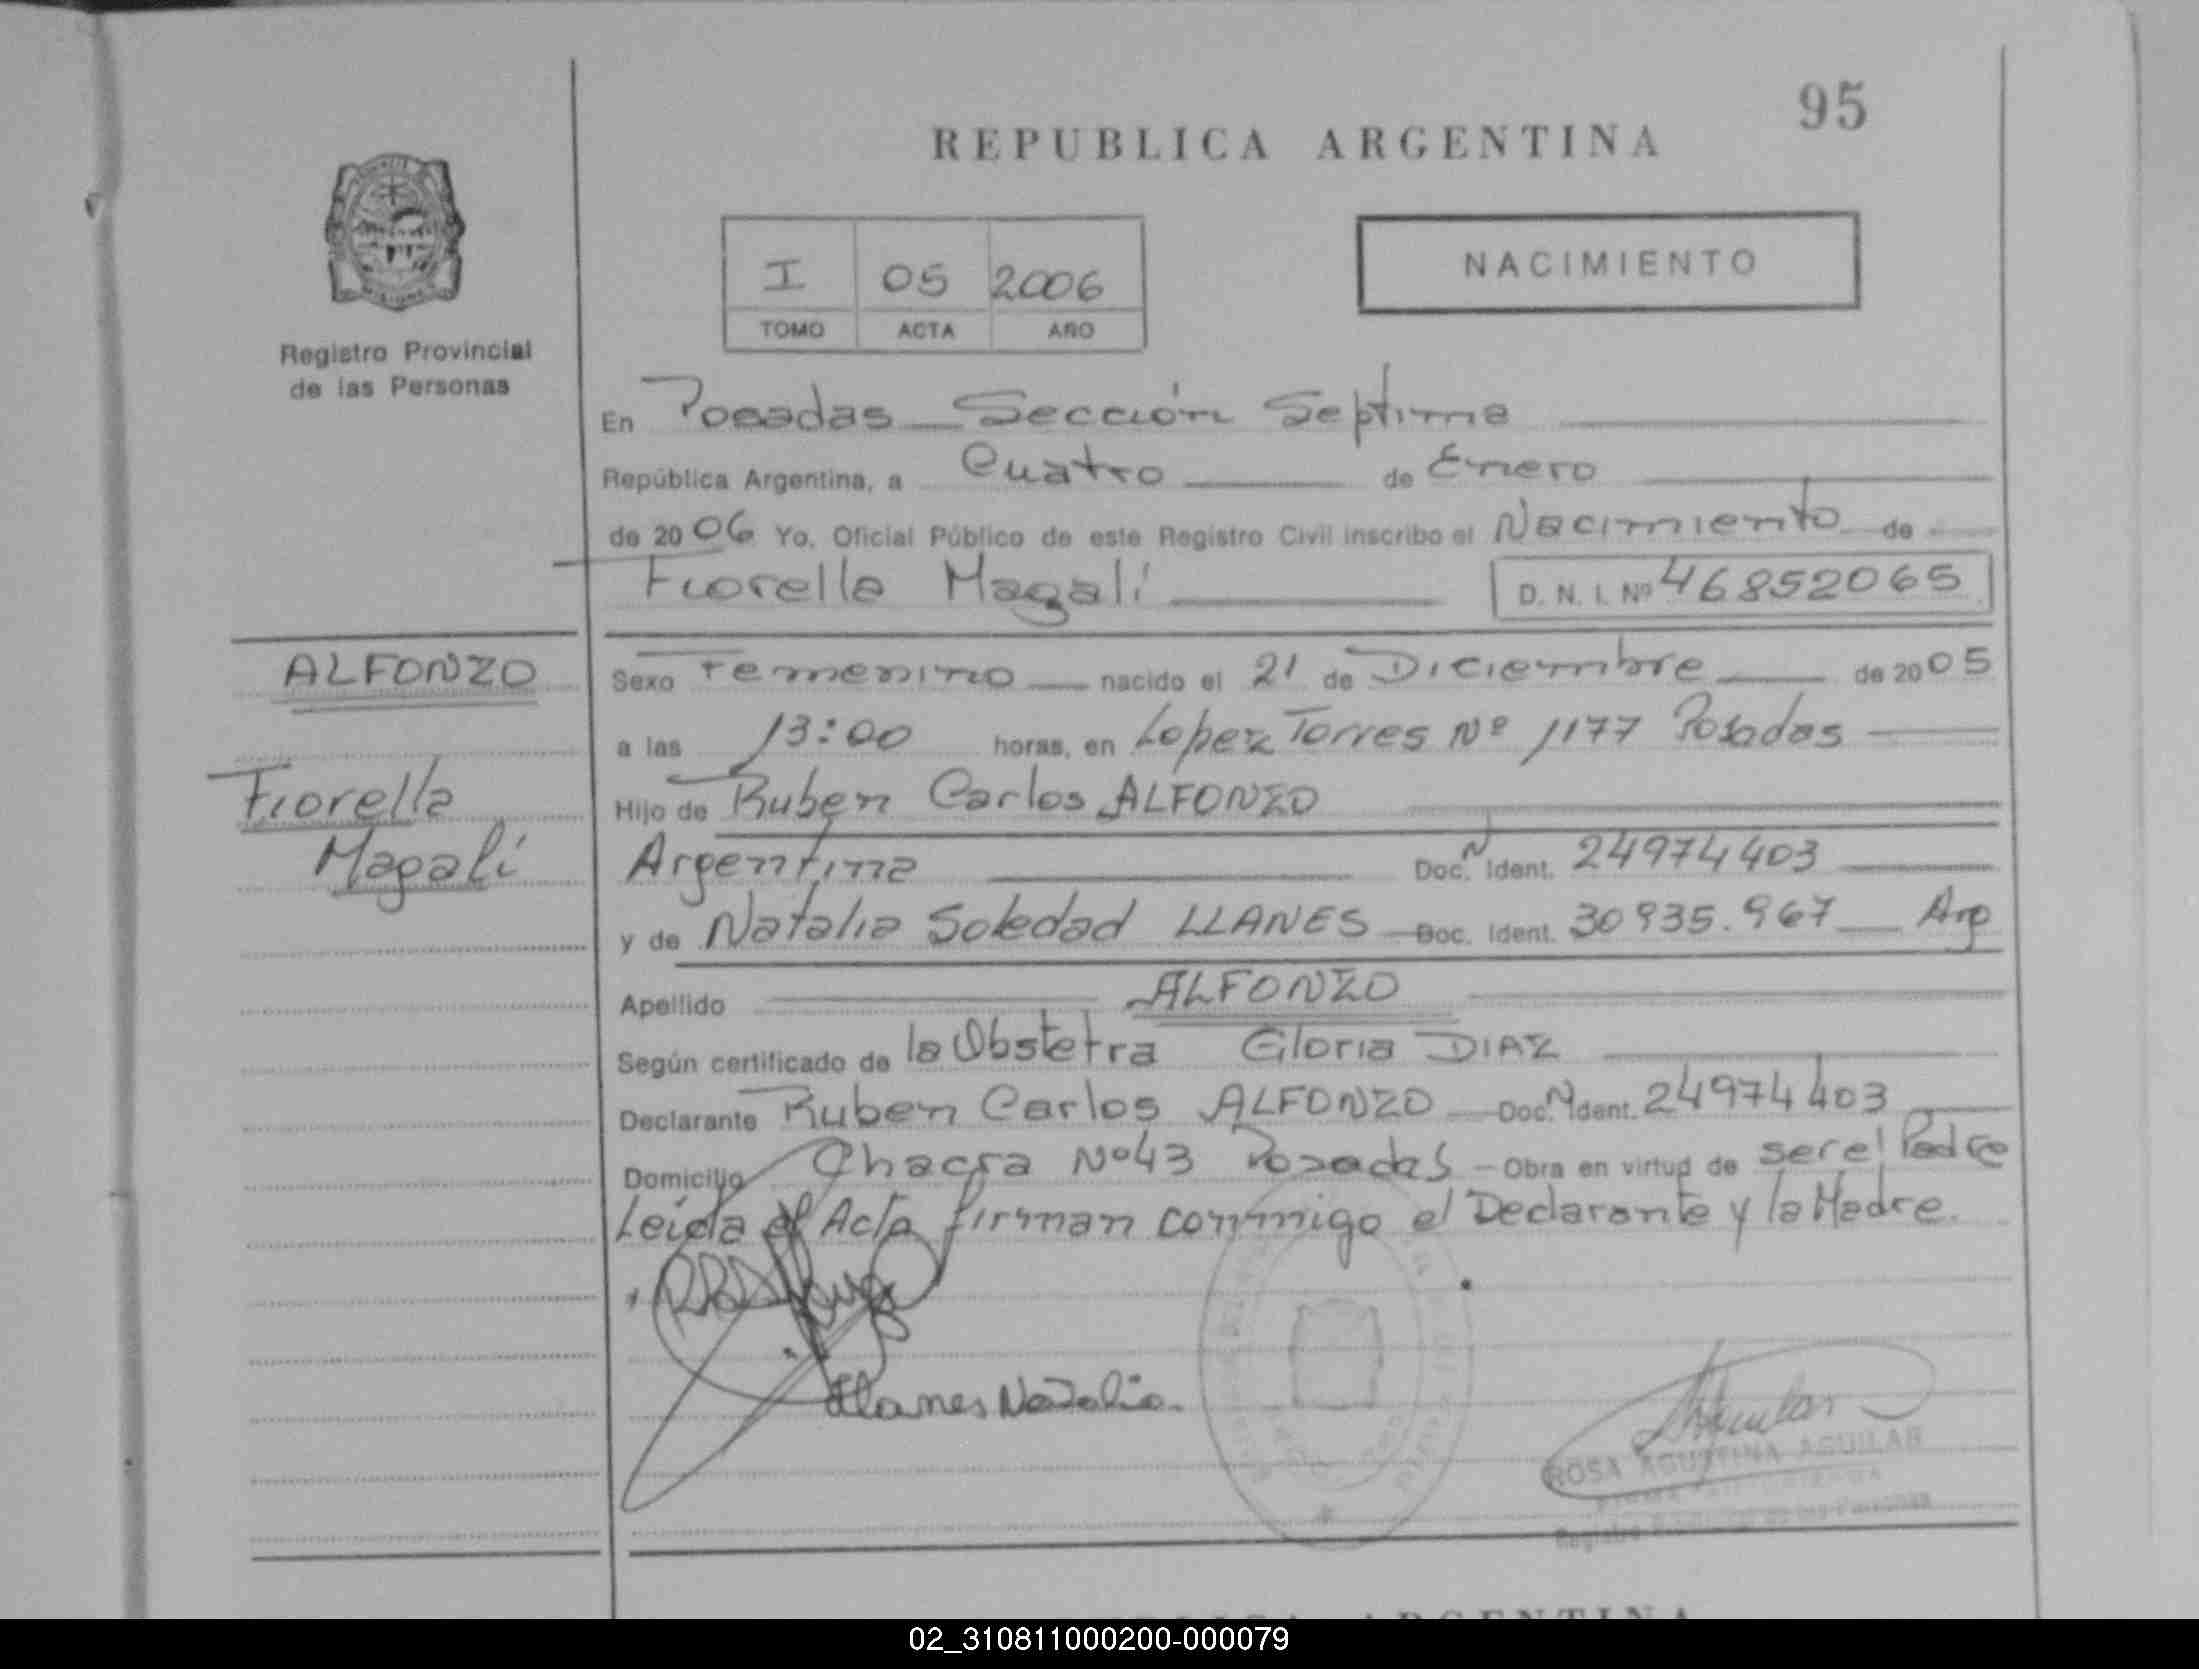 95
REPUBLICA ARGENTINA
NACIMIENTO
I 05 2006
TOMO ACTA AÑO
Registro Provincial
de las Personas
En Posadas Sección Septima
República Argentina, a Cuatro de Enero
de 2006 Yo, Oficial Público de este Registro Civil inscribo el Nacimiento de
Fiorella Magalí D. N. I. Nº 46852065
ALFONZO
Fiorella
Magalí
Sexo Femenino nacido el 21 de Diciembre de 2005
a las 13:00 horas, en Lopez Torres Nº 1177 Posadas
Hijo de Ruben Carlos ALFONZO
Argentina Doc. N Ident. 24974403
y de Natalia Soledad LLANES Doc. Ident. 30935.967 Arg
Apellido ALFONZO
Según certificado de la Obstetra Gloria DIAZ
Declarante Ruben Carlos ALFONZO Doc. N Ident. 24974403
Domicilio Chacra Nº43 Posadas - Obra en virtud de ser el Padre
Leída el Acta firman conmigo el Declarante y la Madre.
Llanes Natalia.
ROSA AGUSTINA AGUILAR
REPUBLICA ARGENTINA
02_310811000200-000079